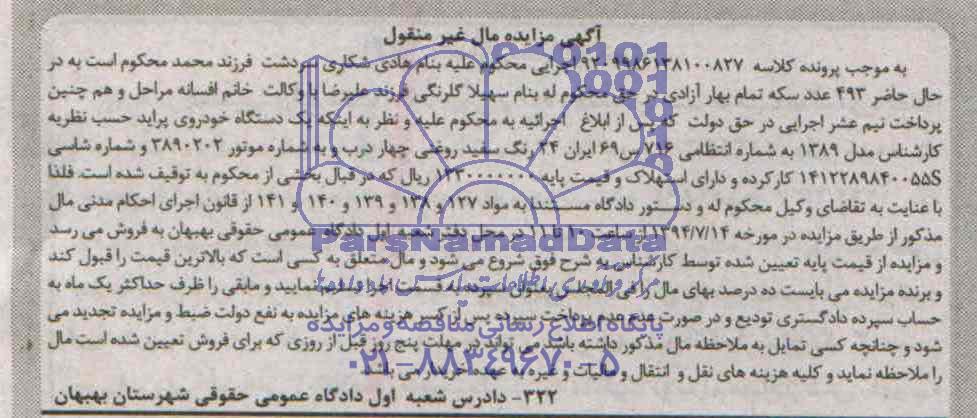 آگهی مزایده مال غیر منقول
به موجب پرونده کلاسه ۹۲۰۹۹۸۶۱۳۸۱۰۰۸۲۷ اجرایی محکوم علیه بنام هادی شکاری سردشت فرزند محمد محکوم است به در
حال حاضر ۴۹۳ عدد سکه تمام بهار آزادی در حق محکوم له بنام سهیلا گلرنگی فرزند علیرضا با وکالت خانم افسانه مراحل و هم چنین
پرداخت نیم عشر اجرایی در حق دولت که پس از ابلاغ اجرائیه به محکوم علیه و نظر به اینکه یک دستگاه خودروی پراید حسب نظریه
کارشناس مدل ۱۳۸۹ به شماره انتظامی ۷۱۶ س ۶۹ ایران ۲۴ رنگ سفید روغنی چهار درب و به شماره موتور ۳۸۹۰۲۰۲ و شماره شاسی
S۱۴۱۲۲۸۹۸۴۰۰۵۵ کارکرده و دارای استهلاک و قیمت پایه ۱۲۳۰۰۰۰۰۰ ریال که در قبال بخشی از محکوم به توقیف شده است. فلذا
با عنایت به تقاضای وکیل محکوم له و دستور دادگاه مستندا به مواد ۱۲۷ و ۱۳۸ و ۱۳۹ و ۱۴۰ و ۱۴۱ از قانون اجرای احکام مدنی مال
مذکور از طریق مزایده در مورخه ۱۳۹۴/۷/۱۴ از ساعت ۱۰ تا ۱۱ در محل دفتر شعبه اول دادگاه عمومی حقوقی بهبهان به فروش می رسد
و مزایده از قیمت پایه تعیین شده توسط کارشناس به شرح فوق شروع می شود و مال متعلق به کسی است که بالاترین قیمت را قبول کند
و برنده مزایده می بایست ده درصد بهای مال را فی المجلس بعنوان سپرده به قسمت اجرا تسلیم نمایید و مابقی را ظرف حداکثر یک ماه به
حساب سپرده دادگستری تودیع و در صورت عدم پرداخت سپرده پس از کسر هزینه های مزایده به نفع دولت ضبط و مزایده تجدید می
شود و چنانچه کسی تمایل به ملاحظه مال مذکور داشته باشد می تواند در مهلت پنج روز قبل از روزی که برای فروش تعیین شده است مال
را ملاحظه نماید و کلیه هزینه های نقل و انتقال و مالیات و غیره به عهده خریدار می باشد
۳۲۲- دادرس شعبه اول دادگاه عمومی حقوقی شهرستان بهبهان
ParsNamadData
پایگاه اطلاع رسانی مناقصه و مزایده
۰۲۱-۸۸۳۴۹۶۷۰-۵